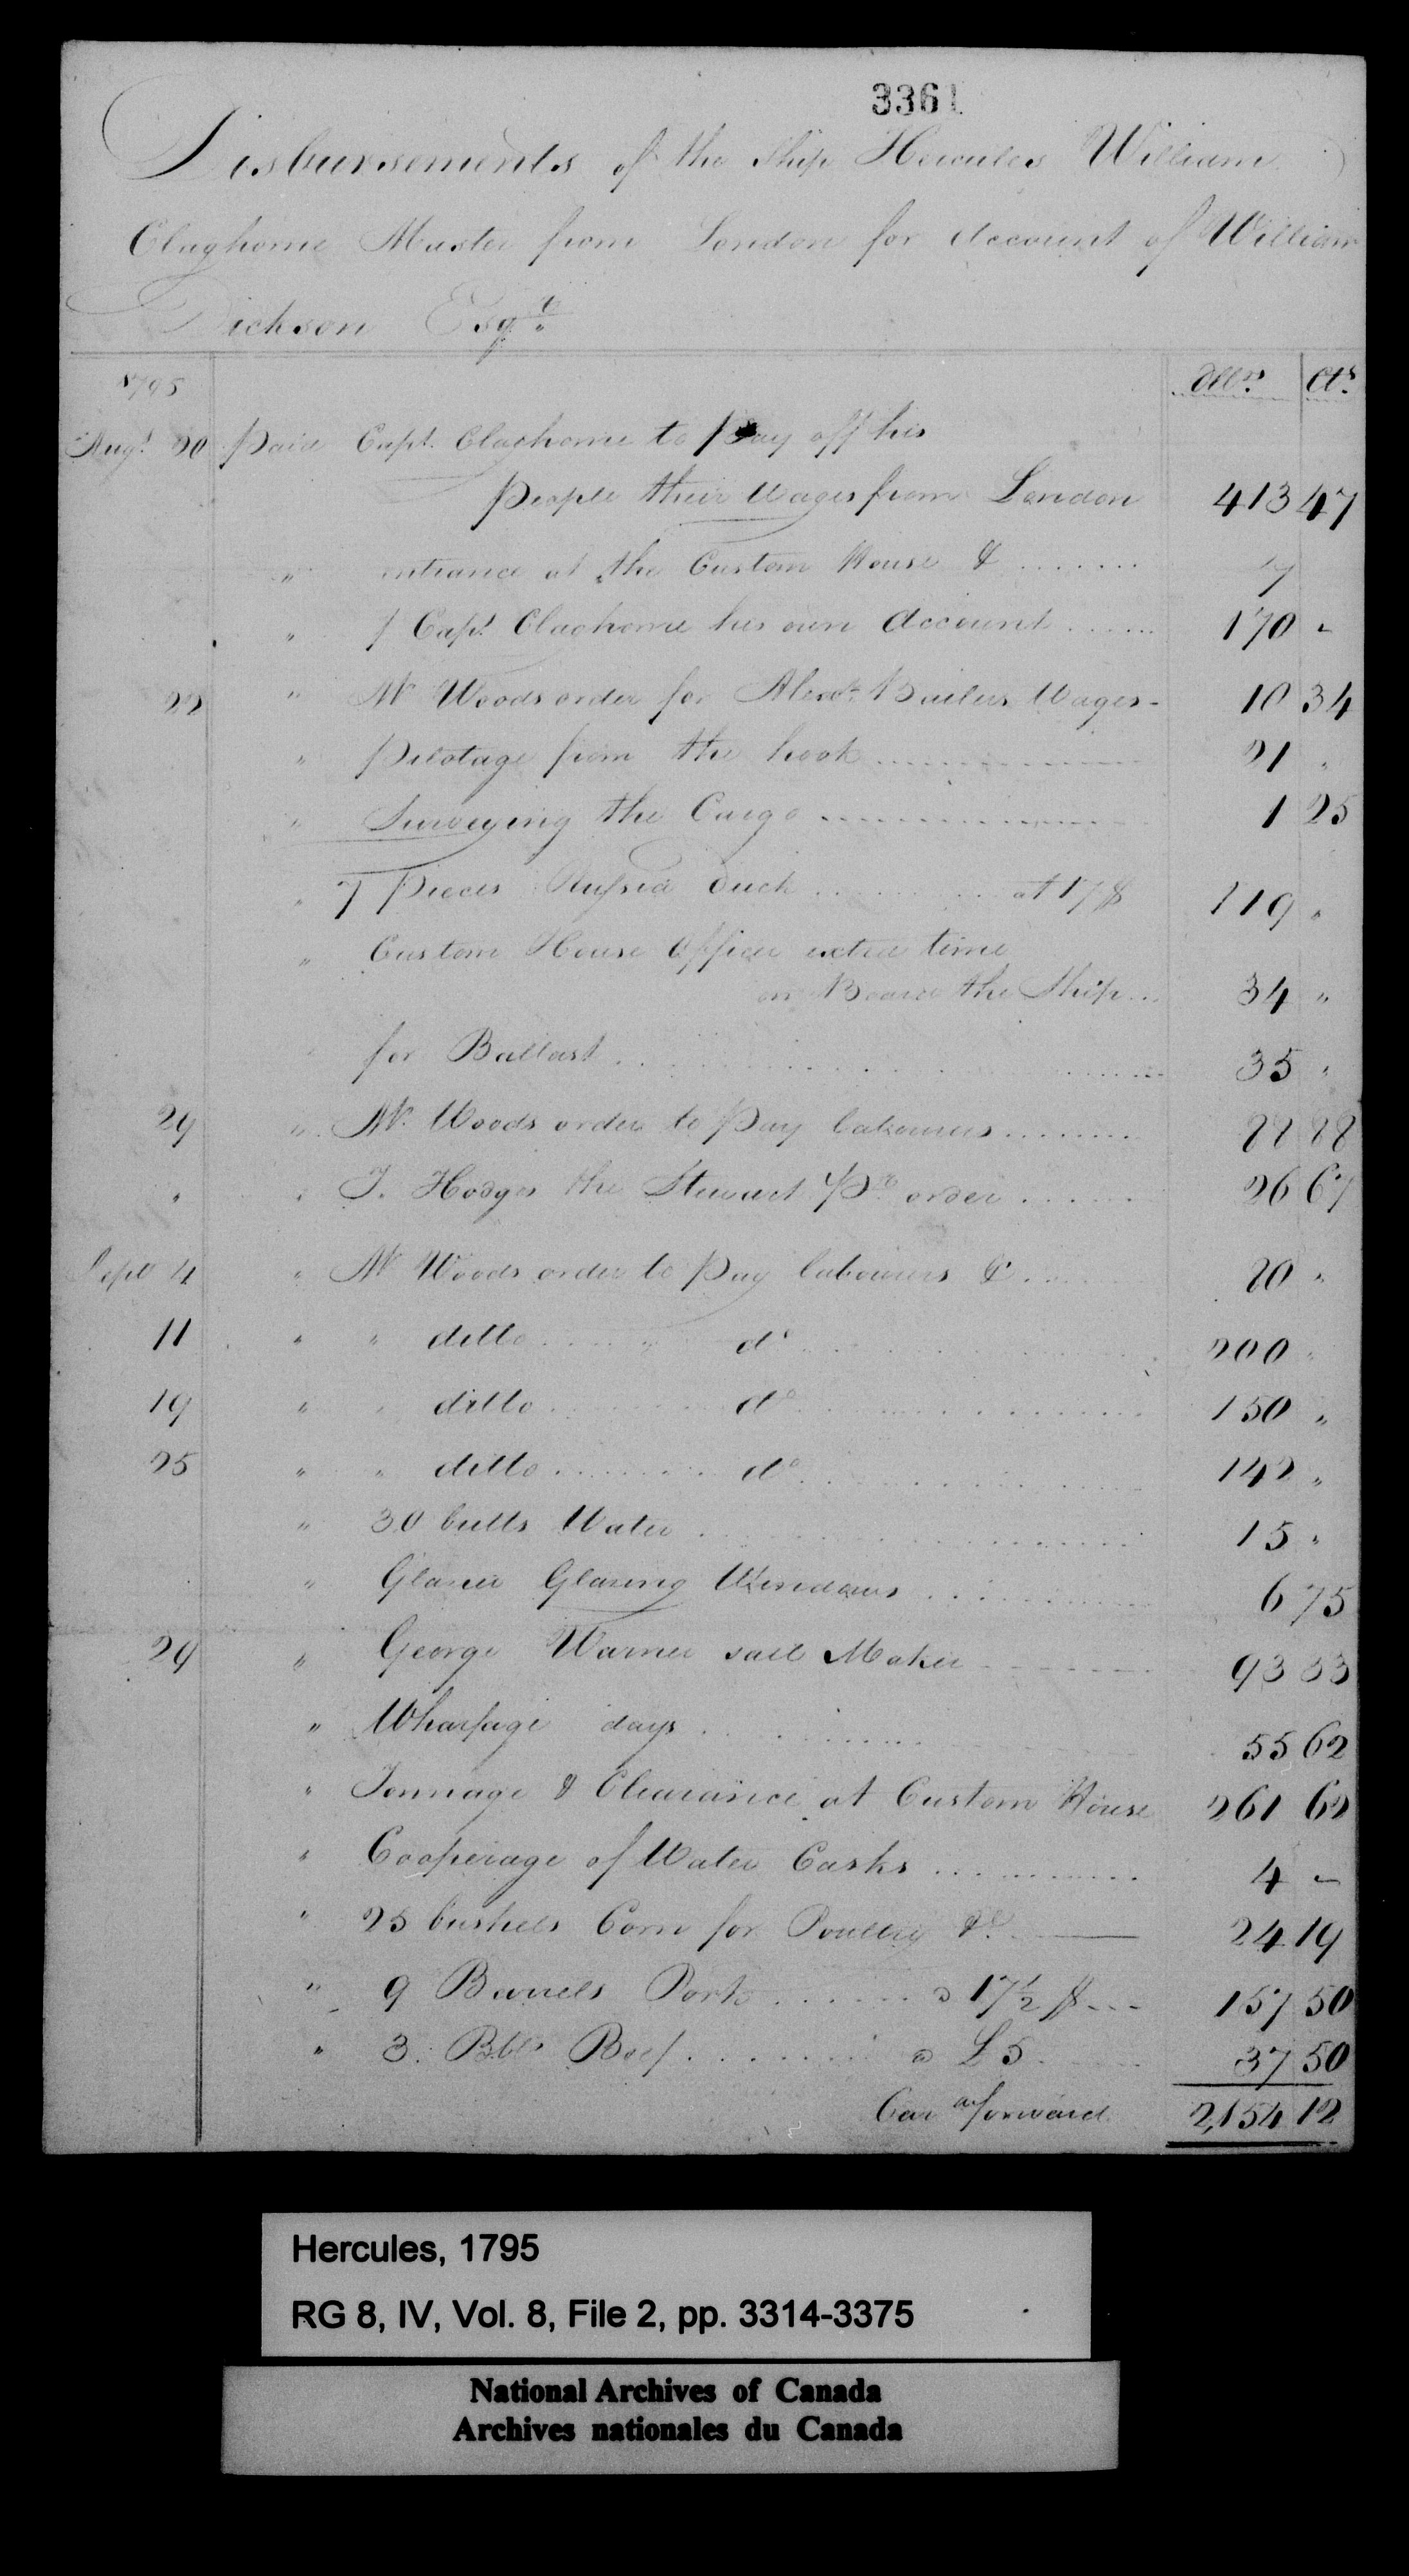 3361
Disbursements of the Ship Hercules William
Claghorne Master from London for Account of William
Dickson Esqr.
1795 Dllrs. Cts.
Augt. 20 Paid Capt. Claghorne to Pay off his
People their Wages from London 413 47
" entrance at the Custom House & ........ 7
" Capt. Claghorne his own Account ...... 170 -
22 " Mr Woods order for Alexr. Wages - 10 34
" Pilotage from the hook ........ 21 "
" Surveying the Cargo ........ 1 25
" 7 Pieces Russia Duck ........ at 17 $ 119 "
" Custom House Officer extra time
on Board the Ship ... 34 "
" for Ballast ........ 35 "
29 " Mr. Woods order to Pay Labourers ........ 88 88
" " J. Hodges the Stewart Pr. order ....... 26 67
Sept 4 " Mr Woods order to Pay labourers & ..... 80 "
11 " " ditto ..... " do ........ 200 "
19 " " ditto ........ do ........ 150 "
25 " " ditto ........ do ........ 142 "
" 30 butts Water ........ 15 "
" Glazier Glazing Windows ........ 6 75
29 " George Warner sail Maker ------- 93 33
" Wharfage days ........ 55 62
" Tonnage & Clearance at Custom House 261 62
" Cooperage of Water Casks ........ 4 -
" 25 bushels Corn for Poultry &c. —— 24 19
" 9 Barrels Pork ........ a 17 1/2 $ --- 157 50
" 3. Bbls Beef ........ a £5 ..... 37 50
Car forward 2,154 12
Hercules, 1795
RG 8, IV, Vol. 8, File 2, pp. 3314-3375
National Archives of Canada
Archives nationales du Canada